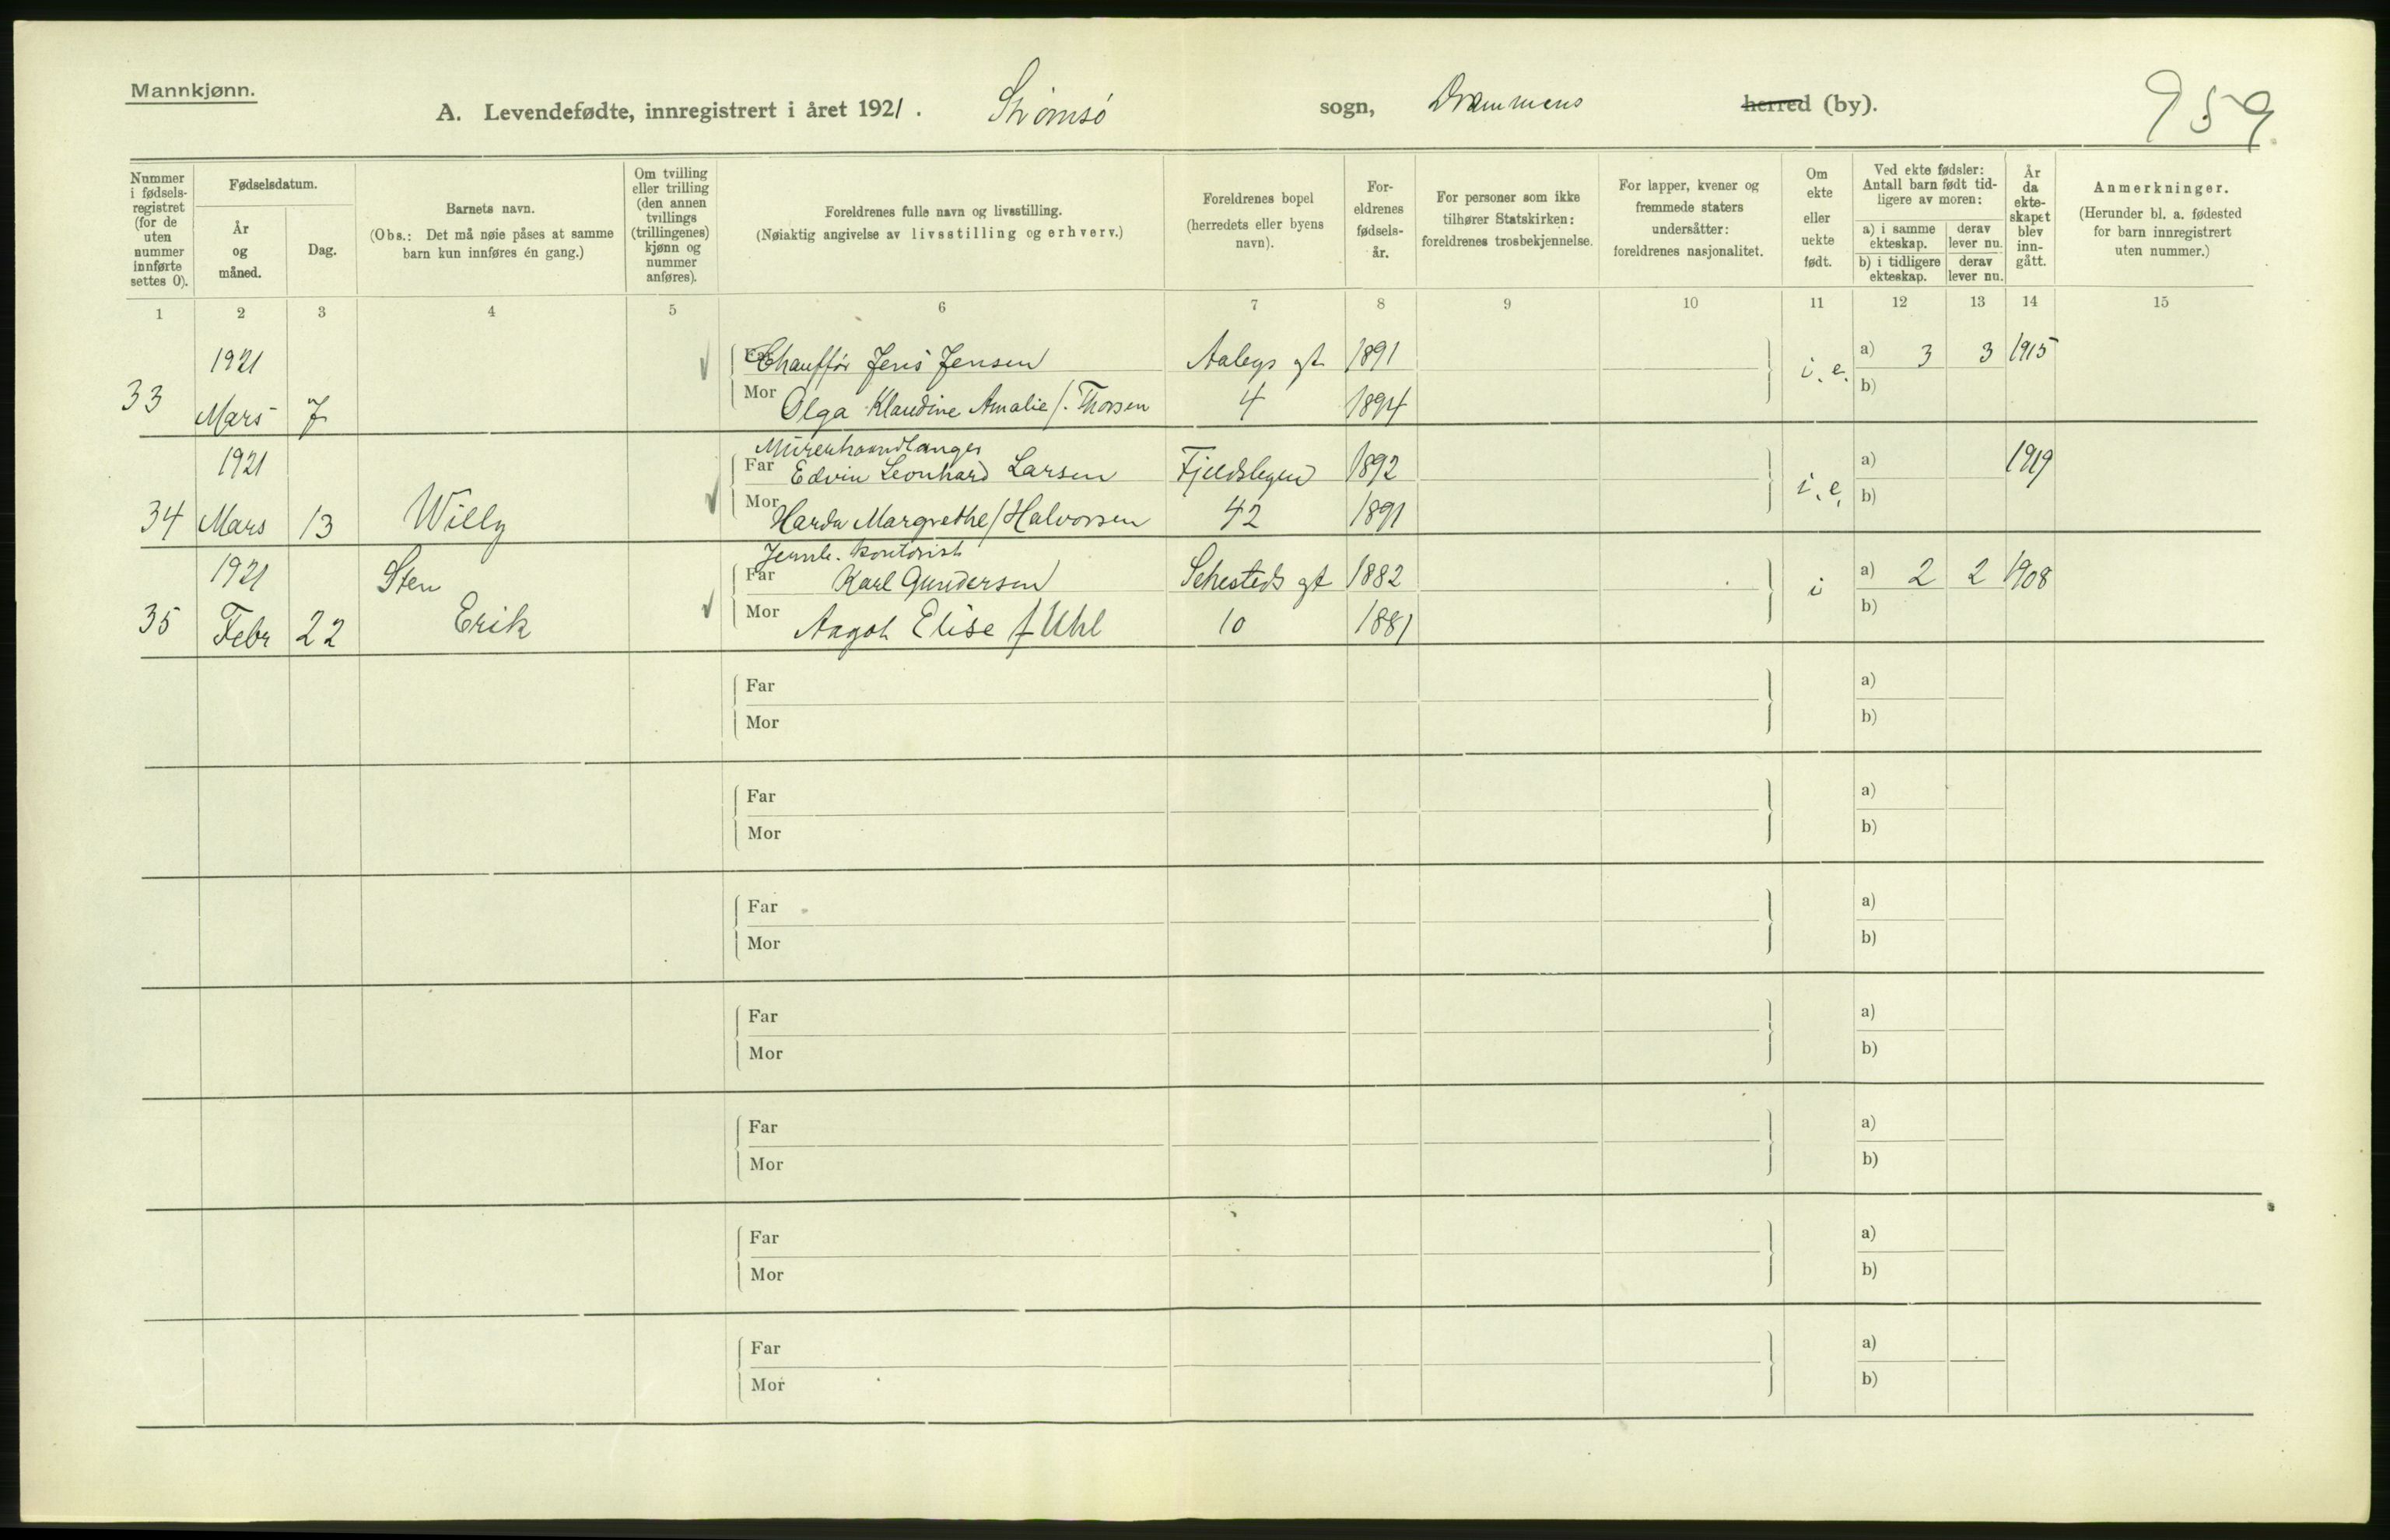 Mannkjønn.
A. Levendefødte, innregistrert i året 1921. Strømsø sogn, Drammens herred (by).
959
Nummer i fødsels-registret (for de uten nummer innførte settes 0).
Fødselsdatum.
År og måned.
Dag.
Barnets navn.
(Obs.: Det må nøie påses at samme barn kun innføres én gang.)
Om tvilling eller trilling (den annen tvillings (trillingenes) kjønn og nummer anføres).
Foreldrenes fulle navn og livsstilling.
(Nøiaktig angivelse av livsstilling og erhverv.)
Foreldrenes bopel (herredets eller byens navn).
For-eldrenes fødsels-år.
For personer som ikke tilhører Statskirken: foreldrenes trosbekjennelse.
For lapper, kvener og fremmede staters undersåtter: foreldrenes nasjonalitet.
Om ekte eller uekte født.
Ved ekte fødsler: Antall barn født tid-ligere av moren:
a) i samme ekteskap.
derav lever nu.
b) i tidligere ekteskap.
derav lever nu.
År da ekte-skapet blev inn-gått.
Anmerkninger.
(Herunder bl. a. fødested for barn innregistrert uten nummer.)
1 2 3 4 5 6 7 8 9 10 11 12 13 14 15
1921 Far Chauffør Jens Jensen Aalegs gt 1891 i. e. a) 3 3 1915
33 Mars 7 Mor Olga Klaudine Amalie f. Thorsen 4 1894 b)
Murerhaandlanger
1921 Far Edvin Leonhard Larsen 1892 i. e. a) 1919
34 Mars 13 Willy Mor Harda Margrethe / Halvorsen 42 1891 b)
Jernb. kontorist
1921 Sten Far Karl Gundersen Sehesteds gt 1882 i a) 2 2 1908
35 Febr 22 Erik Mor Aagot Elise f Uhl 10 1881 b)
Far a)
Mor b)
Far a)
Mor b)
Far a)
Mor b)
Far a)
Mor b)
Far a)
Mor b)
Far a)
Mor b)
Far a)
Mor b)